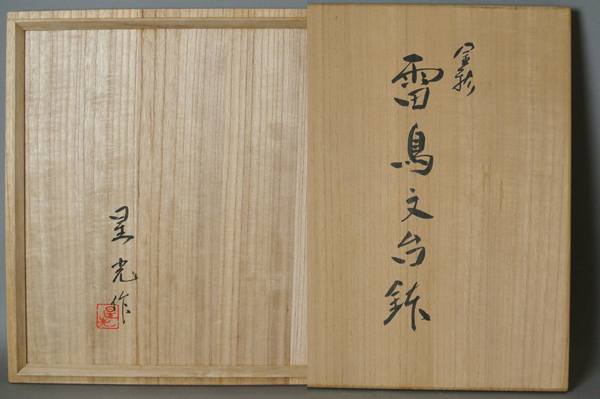 雷鳥文台鉢
星光作